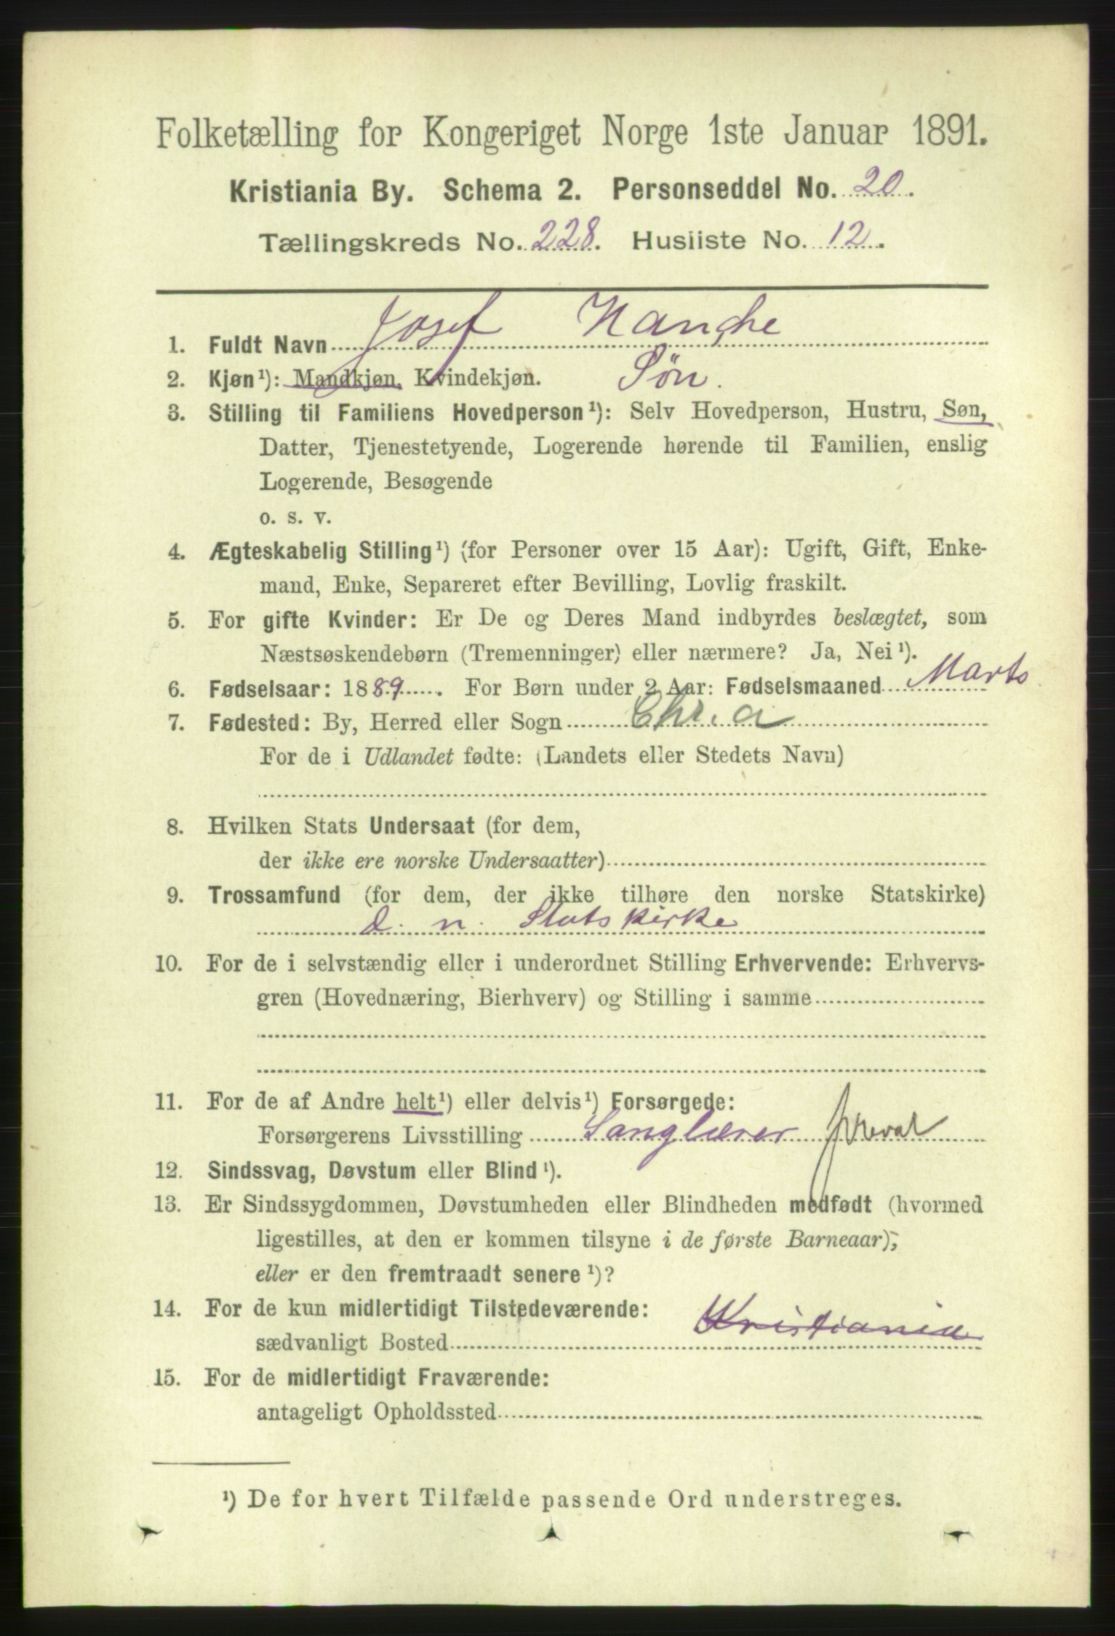 Folketælling for Kongeriget Norge 1ste Januar 1891.
Kristiania By. Schema 2. Personseddel No. 20.
Tællingskreds No. 228. Husliste No. 12.
1. Fuldt Navn Josef Hanche
2. Kjøn¹): Mandkjøn, Kvindekjøn. Søn.
3. Stilling til Familiens Hovedperson¹): Selv Hovedperson, Hustru, Søn,
Datter, Tjenestetyende, Logerende hørende til Familien, enslig
Logerende, Besøgende
o. s. v.
4. Ægteskabelig Stilling¹) (for Personer over 15 Aar): Ugift, Gift, Enke-
mand, Enke, Separeret efter Bevilling, Lovlig fraskilt.
5. For gifte Kvinder: Er De og Deres Mand indbyrdes beslægtet, som
Næstsøskendebørn (Tremenninger) eller nærmere? Ja, Nei¹).
6. Fødselsaar: 1889. For Børn under 2 Aar: Fødselsmaaned Marts
7. Fødested: By, Herred eller Sogn Chr.a
For de i Udlandet fødte: (Landets eller Stedets Navn)
8. Hvilken Stats Undersaat (for dem,
der ikke ere norske Undersaatter)
9. Trossamfund (for dem, der ikke tilhøre den norske Statskirke)
d. n. Statskirke
10. For de i selvstændig eller i underordnet Stilling Erhvervende: Erhvervs-
gren (Hovednæring, Bierhverv) og Stilling i samme
11. For de af Andre helt¹) eller delvis¹) Forsørgede:
Forsørgerens Livsstilling Sanglærer
12. Sindssvag, Døvstum eller Blind¹).
13. Er Sindssygdommen, Døvstumheden eller Blindheden medfødt (hvormed
ligestilles, at den er kommen tilsyne i de første Barneaar);
eller er den fremtraadt senere¹)?
14. For de kun midlertidigt Tilstedeværende:
sædvanligt Bosted Kristiania
15. For de midlertidigt Fraværende:
antageligt Opholdssted
¹) De for hvert Tilfælde passende Ord understreges.